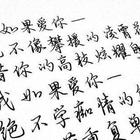 如果爱你—
绝不像攀援的凌霄
借你的高枝炫耀
我如果爱你—
绝不学痴情的